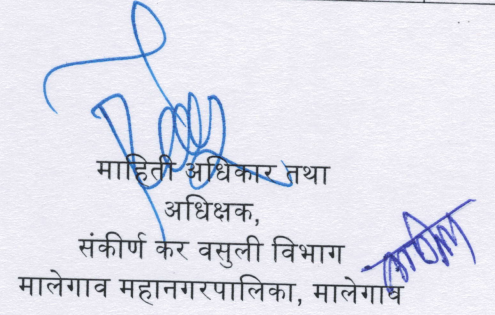 माहिती अधिकार तथा
अधिक्षक,
संकीर्ण कर वसुली विभाग
मालेगाव महानगरपालिका, मालेगाव